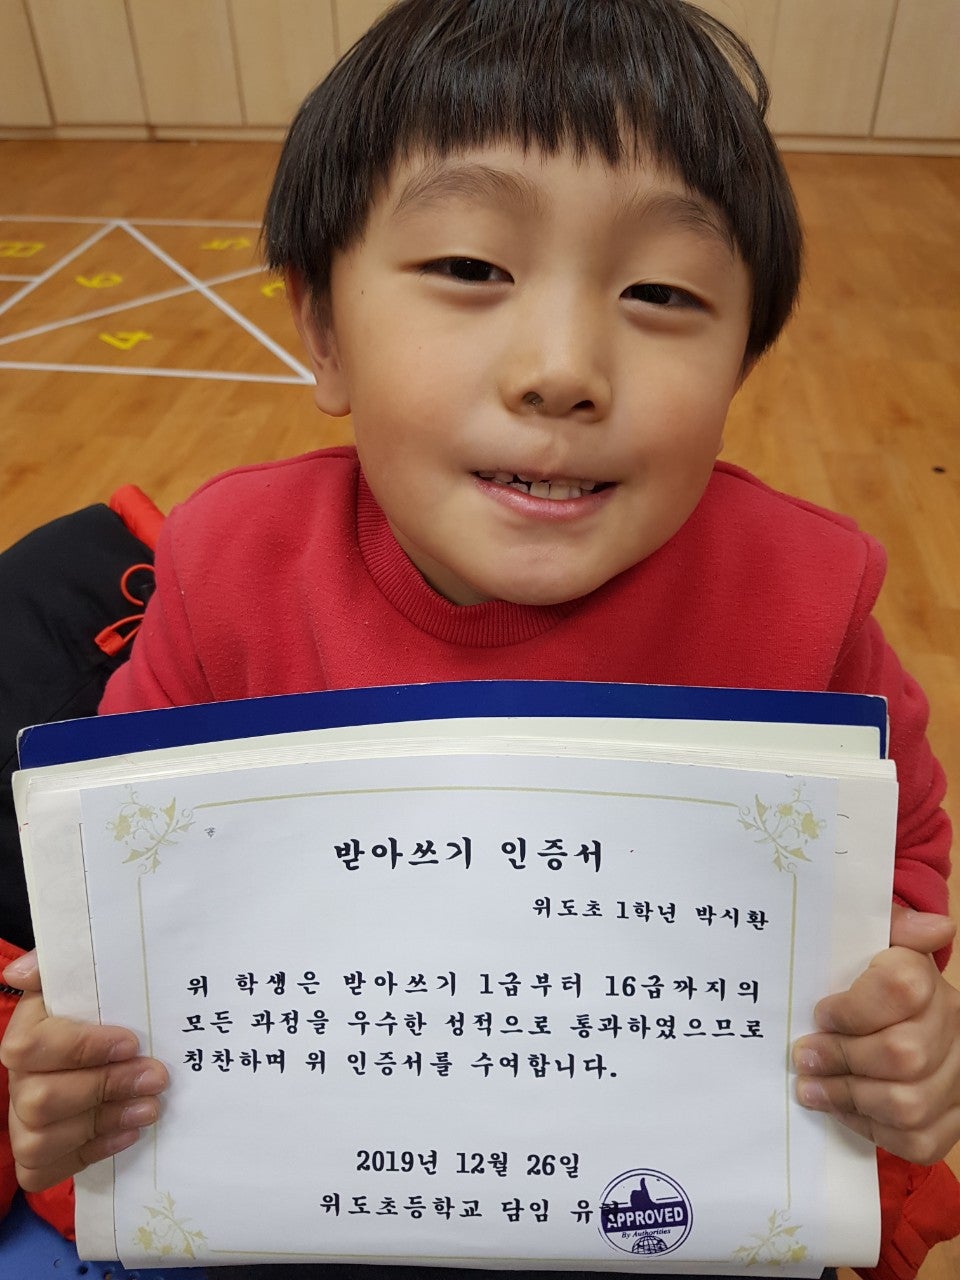 8
6
5
4
받아쓰기 인증서
위도초 1학년 박시환
위 학생은 받아쓰기 1급부터 16급까지의
모든 과정을 우수한 성적으로 통과하였으므로
칭찬하며 위 인증서를 수여합니다.
2019년 12월 26일
위도초등학교 담임 유
APPROVED
By Authorities